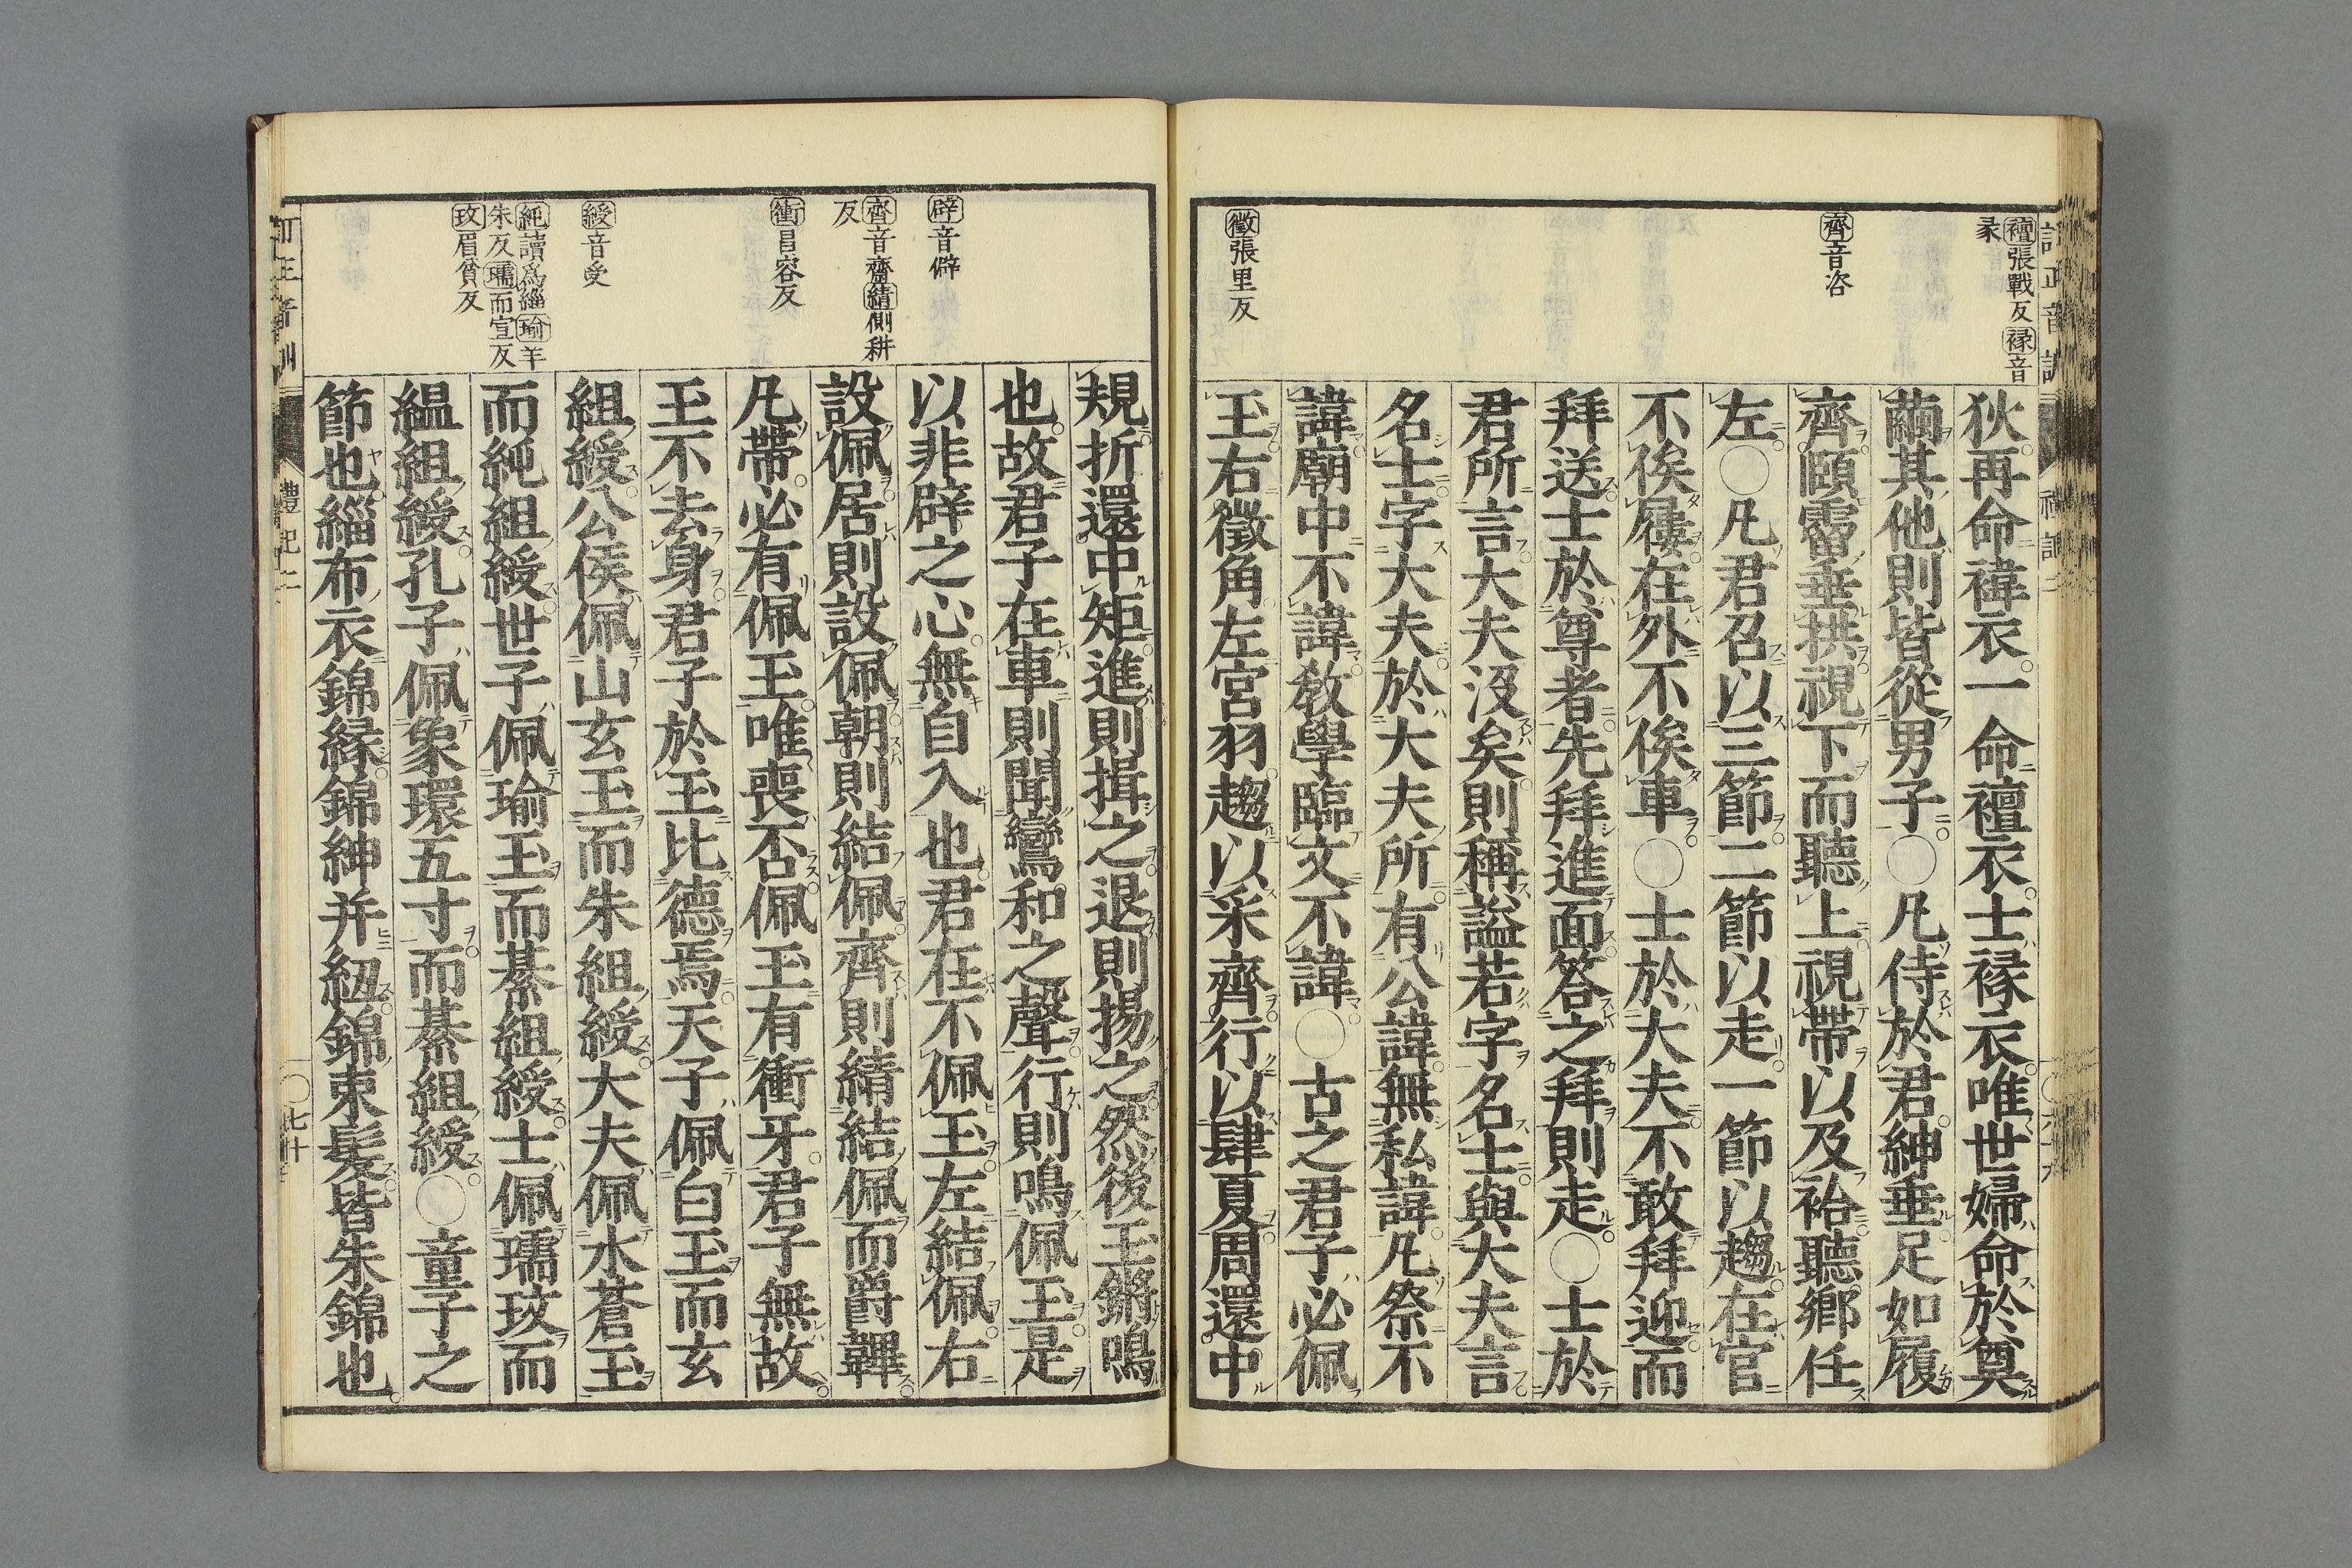 襢張戰反褖音
彖
齊音咨
徵張里反
狄再命褘衣一命襢衣士褖衣唯世婦命於奠
繭其他則皆從男子○凡侍於君紳垂足如履
齊頤霤垂拱視下而聽上視帶以及袷聽鄉任
左○凡君召以三節二節以走一節以趨在官
不俟屨在外不俟車○士於大夫不敢拜迎而
拜送士於尊者先拜進面答之拜則走○士於
君所言大夫沒矣則稱謚若字名士與大夫言
名士字大夫於大夫所有公諱無私諱凡祭不
諱廟中不諱敎學臨文不諱○古之君子必佩
玉右徵角左宮羽趨以采齊行以肆夏周還中
辟音僻
齊音齋綪側耕
反
衝昌容反
綬音受
純讀爲緇瑜羊
朱反瓀而宣反
玫眉貧反
規折還中矩進則揖之退則揚之然後玉鏘鳴
也故君子在車則聞鸞和之聲行則鳴佩玉是
以非辟之心無自入也君在不佩玉左結佩右
設佩居則設佩朝則結佩齊則綪結佩而爵韠
凡帶必有佩玉唯喪否佩玉有衝牙君子無故
玉不去身君子於玉比德焉天子佩白玉而玄
組綬公侯佩山玄玉而朱組綬大夫佩水蒼玉
而純組綬世子佩瑜玉而綦組綬士佩瓀玫而
縕組綬孔子佩象環五寸而綦組綬○童子之
節也緇布衣錦緣錦紳幷紐錦束髮皆朱錦也
訂正音訓
禮記二
○七十